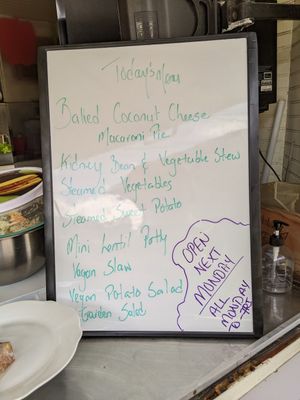 Today's Menu
Baked Coconut Cheese
Macaroni Pie
Kidney Bean & Vegetable Stew
Steamed Vegetables
Steamed Sweet Potato
Mini Lentil Patty
Vegan Slaw
Vegan Potato Salad
Garden Salad
OPEN
NEXT
MONDAY
ALL
MONDAY
TO FRI